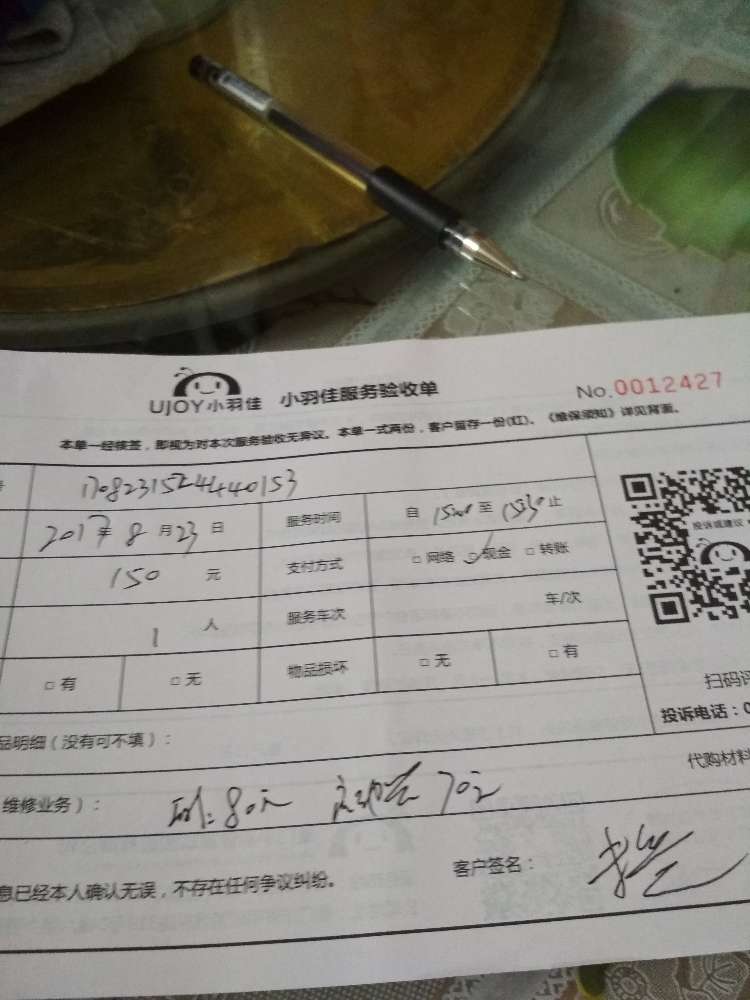 UJOY小羽佳 小羽佳服务验收单 No.0012427
本单一经核签，即视为对本次服务验收无异议。本单一式两份，客户留存一份(红)。《维保须知》详见背面。
号 17082315244440153
2017年 8 月 23 日 服务时间 自 至 1530 止
150 元 支付方式 □ 网络 □ 现金 □ 转账
1 人 服务车次 车/次
□ 有 □ 无 物品损坏 □ 无 □ 有
投诉或建议
扫码评
投诉电话：0
品明细（没有可不填）：
代购材料
维修业务）： 80元 70元
息已经本人确认无误，不存在任何争议纠纷。 客户签名：